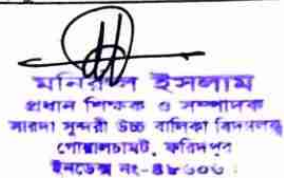 মনিরুল ইসলাম
প্রধান শিক্ষক ও সম্পাদক
সারদা সুন্দরী উচ্চ বালিকা বিদ্যালয়
গোয়ালচামট, ফরিদপুর
ইনডেক্স নং-